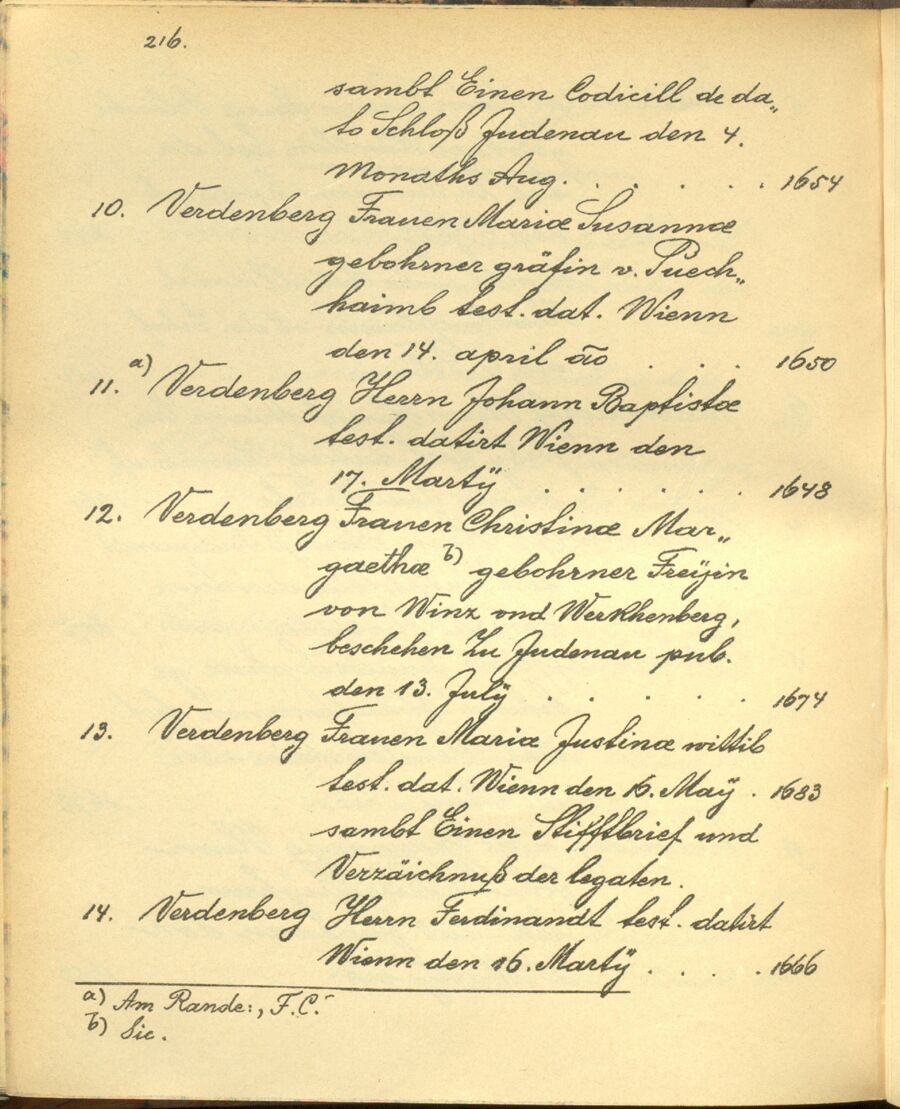 216.
sambt Einen Codicill de da„
to Schloß Judenau den 4.
Monaths Aug. . . . . . 1654
10. Verdenberg Frauen Mariæ Susannæ
gebohrner gräfin v. Puech„
haimb test. dat. Wienn
den 14. april ão . . . 1650
11. a) Verdenberg Herrn Johann Baptistæ
test. datirt Wienn den
17. Martÿ . . . . . . 1648
12. Verdenberg Frauen Christinæ Mar„
gaethæ b) gebohrner Freÿin
von Winz vnd Werkhenberg,
beschehen Zu Judenau pub.
den 13. Julÿ . . . . . 1674
13. Verdenberg Frauen Mariæ Justinæ wittib
test. dat. Wienn den 16. Maÿ . 1683
sambt Einen Stifftbrief und
Verzäichnuß der legaten.
14. Verdenberg Herrn Ferdinandt test. datirt
Wienn den 16. Martÿ . . . . 1666
a) Am Rande: „F.C."
b) Sic.